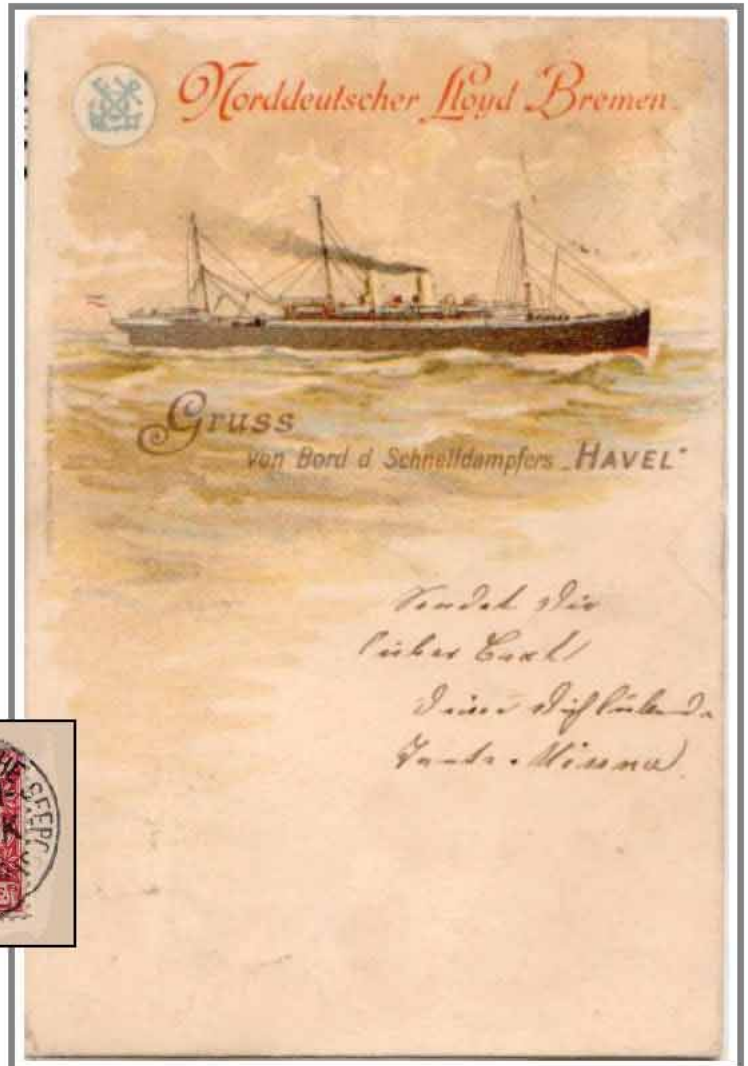 Norddeutscher Lloyd Bremen.
Gruss
von Bord d Schnelldampfers „HAVEL"
Sendet Dir
lieber Carl
Deine Dich liebende
Tante Minna
HE SEEPO